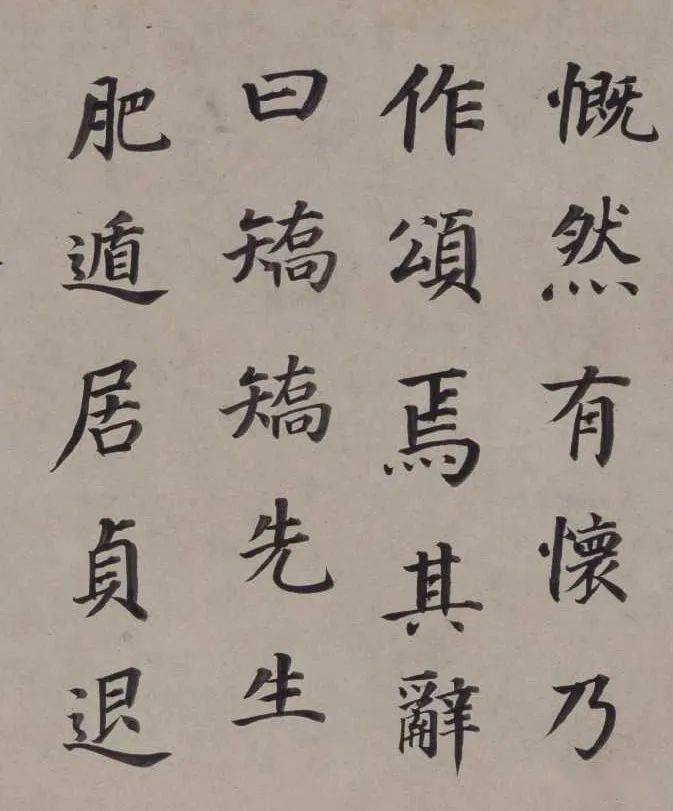 慨然有懷乃
作頌焉其辭
曰矯矯先生
肥遁居貞退